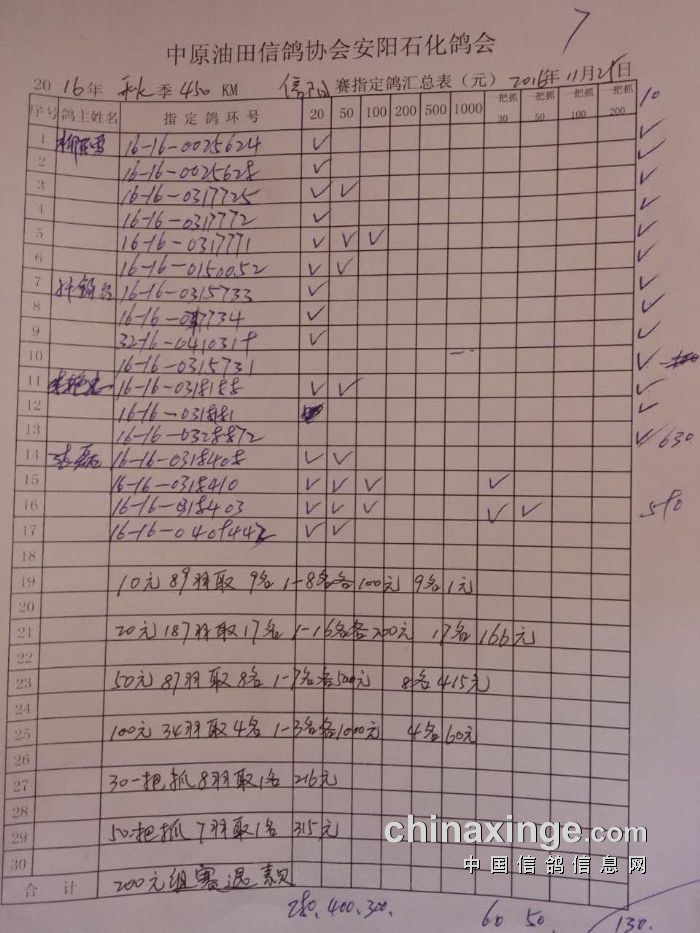 7
中原油田信鸽协会安阳石化鸽会
2016年 秋 季 450 KM 信阳 赛指定鸽汇总表（元） 2016年11月25日
序号 鸽主姓名 指定鸽环号 20 50 100 200 500 1000 一把抓30 一把抓50 一把抓100 一把抓200 10
1 16-16-0025624 ✓ ✓
2 16-16-0025628 ✓ ✓
3 16-16-0317725 ✓ ✓ ✓
4 16-16-0317772 ✓ ✓
5 16-16-0317771 ✓ ✓ ✓ ✓
6 16-16-0150052 ✓ ✓ ✓
7 16-16-0315733 ✓ ✓
8 ✓ ✓
9 ✓ ✓
10 16-16-0315731 ✓
11 16-16-0318188 ✓ ✓ ✓
12 16-16-031881 ✓
13 16-16-0328872 ✓ 630
14 张磊 16-16-0318408 ✓ ✓
15 16-16-0318410 ✓ ✓ ✓ ✓
16 16-16-0318403 ✓ ✓ ✓ ✓ ✓ 580
17 16-16-0408442 ✓ ✓
18
19 10元 89羽取 9名 1-8名各100元 9名1元
20
21 20元 187羽取17名 1-16名各200元 17名166元
22
23 50元 87羽取8名 1-7名各500元 8名415元
24
25 100元 34羽取4名 1-3名各1000元 4名60元
26
27 30一把抓8羽取1名 216元
28
29 50一把抓7羽取1名 315元
30
合计 200元组赛退款
280. 400. 300. 60 50. 130.
chinaxinge.com
中国信鸽信息网